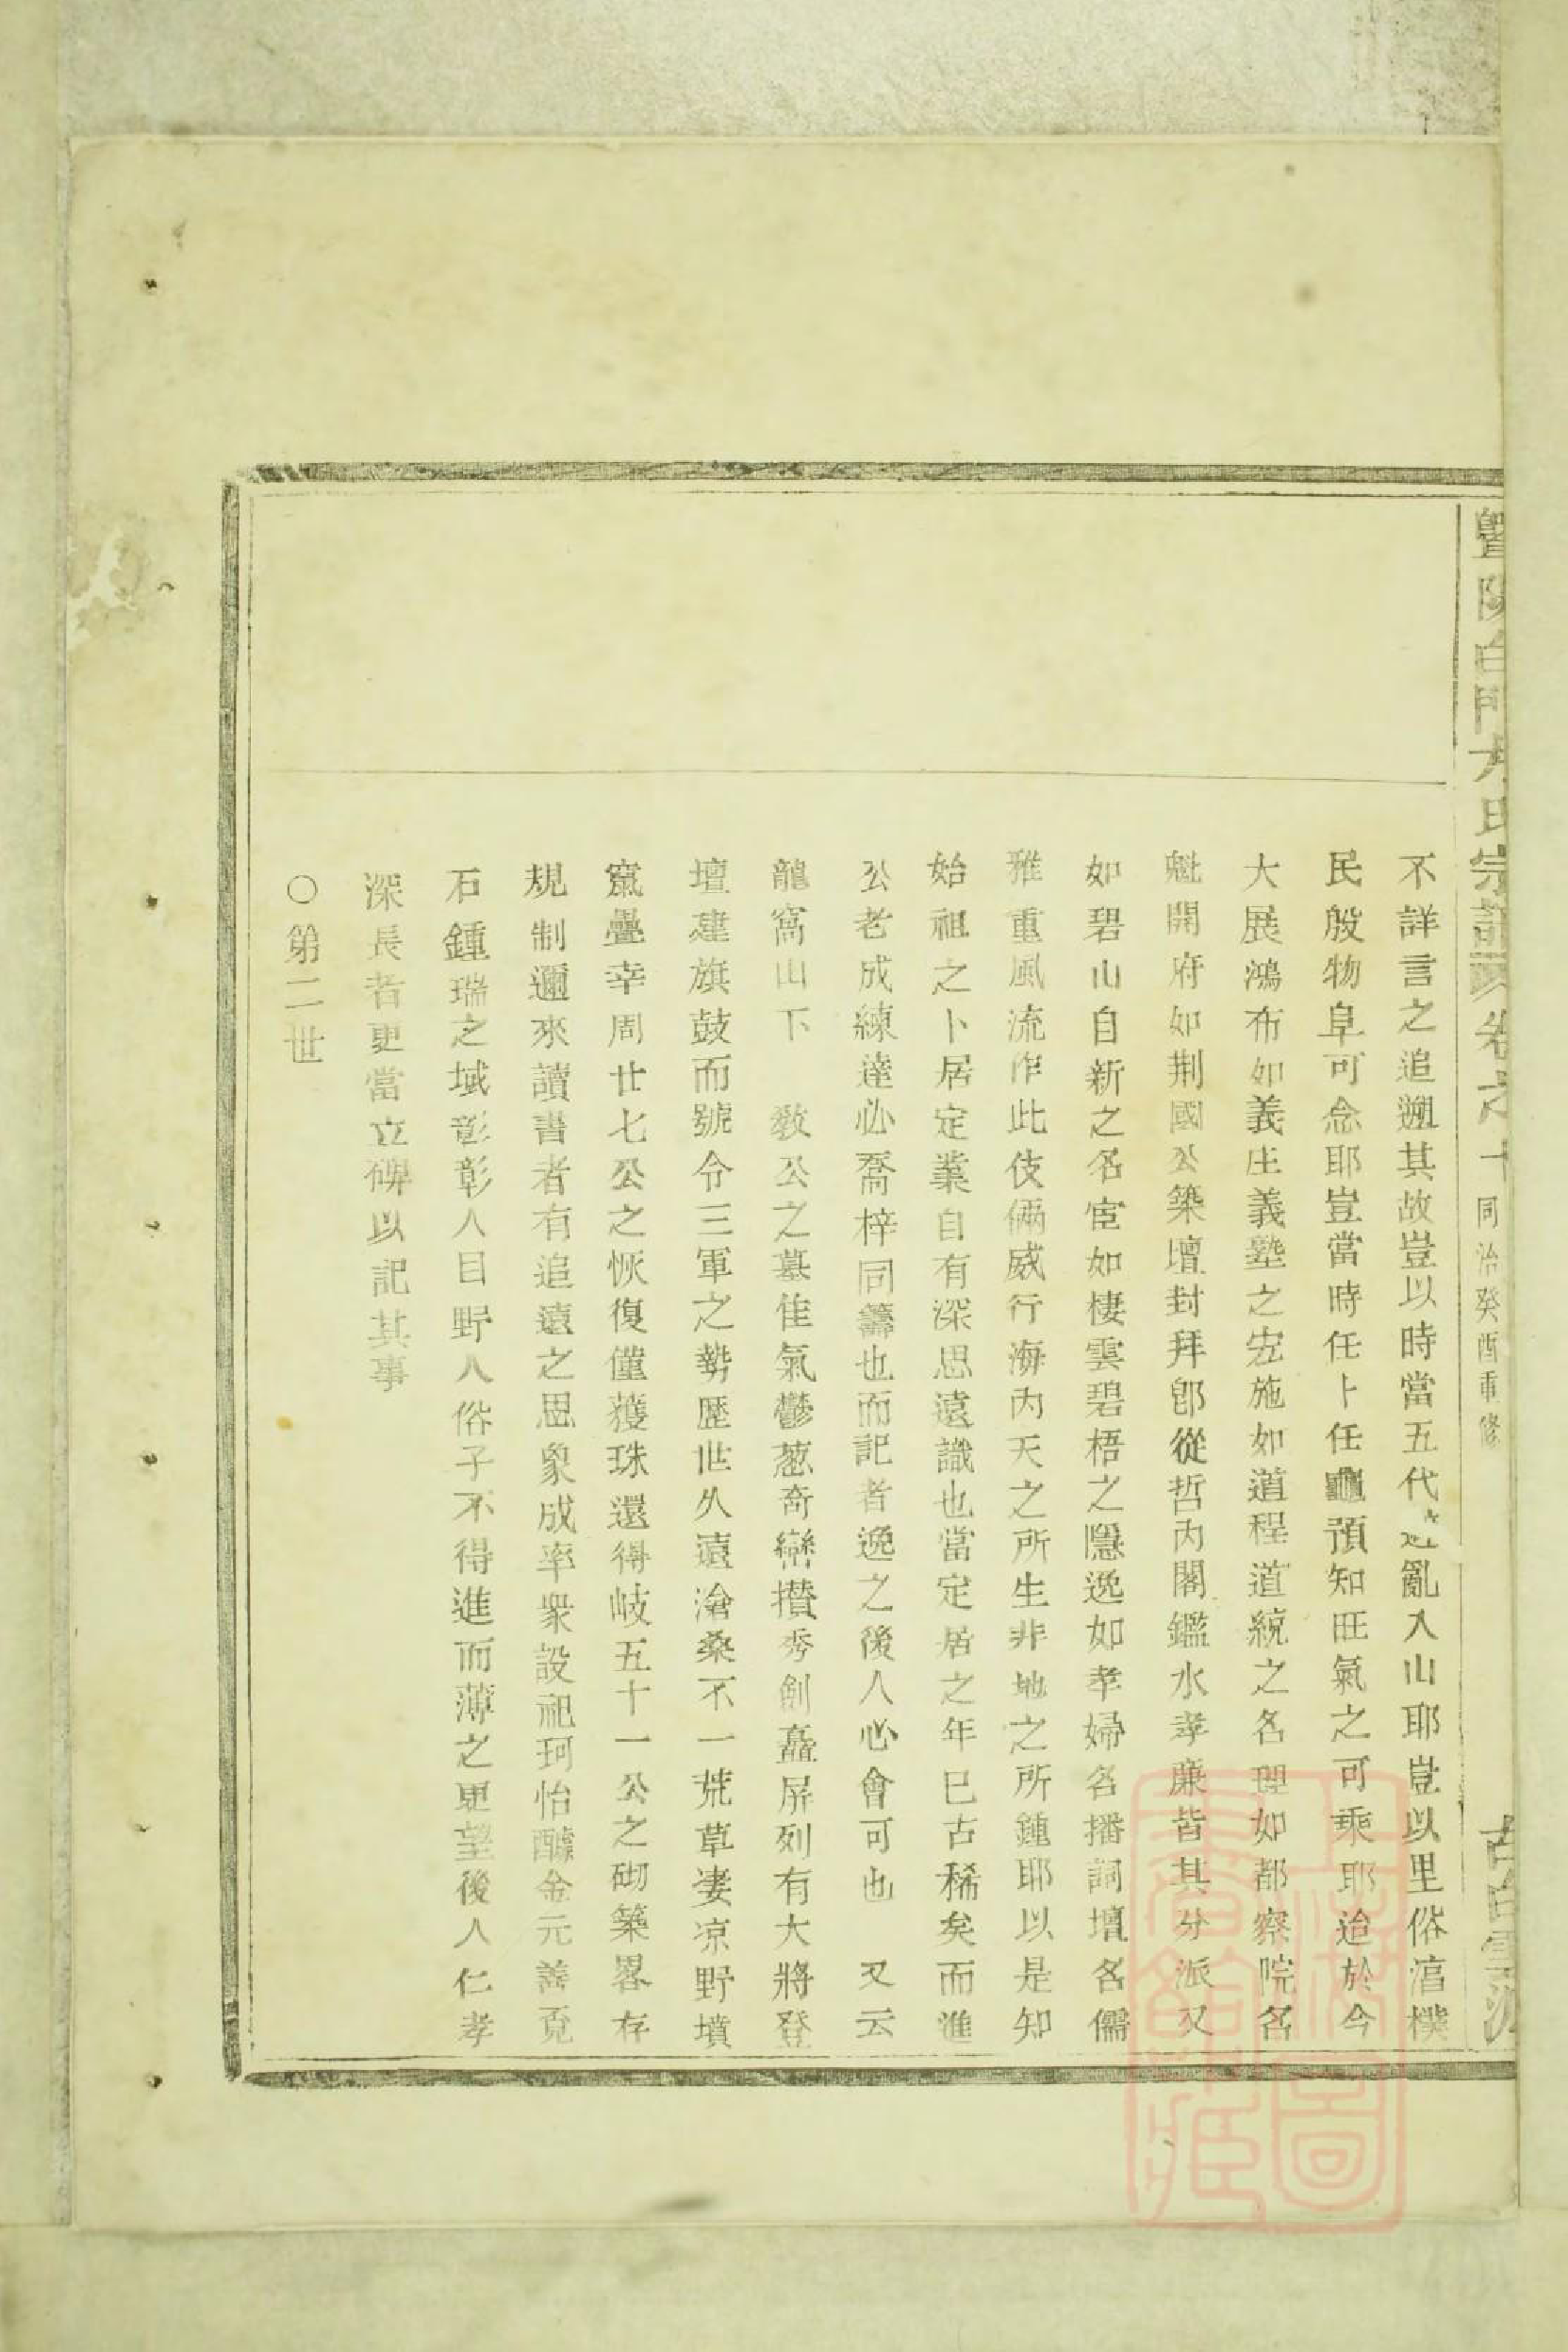 暨陽白門方氏宗譜 卷之十 同治癸酉重修
不詳言之追遡其故豈以時當五代亂入山耶豈以里俗湻樸
民殷物阜可念耶豈當時任卜任龜預知旺氣之可乘耶迨於今
大展鴻布如義庄義塾之宏施如道程道統之名理如都察院名
魁開府如荆國公築壇封拜卽從哲內閣鑑水孝廉皆其分派又
如碧山自新之名宦如棲雲碧梧之隱逸如孝婦名播詞壇名儒
雅重風流作此伎倆威行海內天之所生非地之所鍾耶以是知
始祖之卜居定業自有深思遠識也當定居之年巳古稀矣而進
公老成練達必喬梓同籌也而記者逸之後人必會可也 又云
龍窩山下 敎公之墓佳氣鬱葱奇巒攅秀劍矗屏列有大將登
壇建旗鼓而號令三軍之勢歷世久遠滄桑不一荒草凄凉野墳
竄疊幸周廿七公之恢復僅獲珠還得岐五十一公之砌築畧存
規制邇來讀書者有追遠之思象成率衆設祀珂怡醵金元善覓
石鍾瑞之域彰彰人目野人俗子不得進而薄之更望後人仁孝
深長者更當立碑以記其事
○第二世